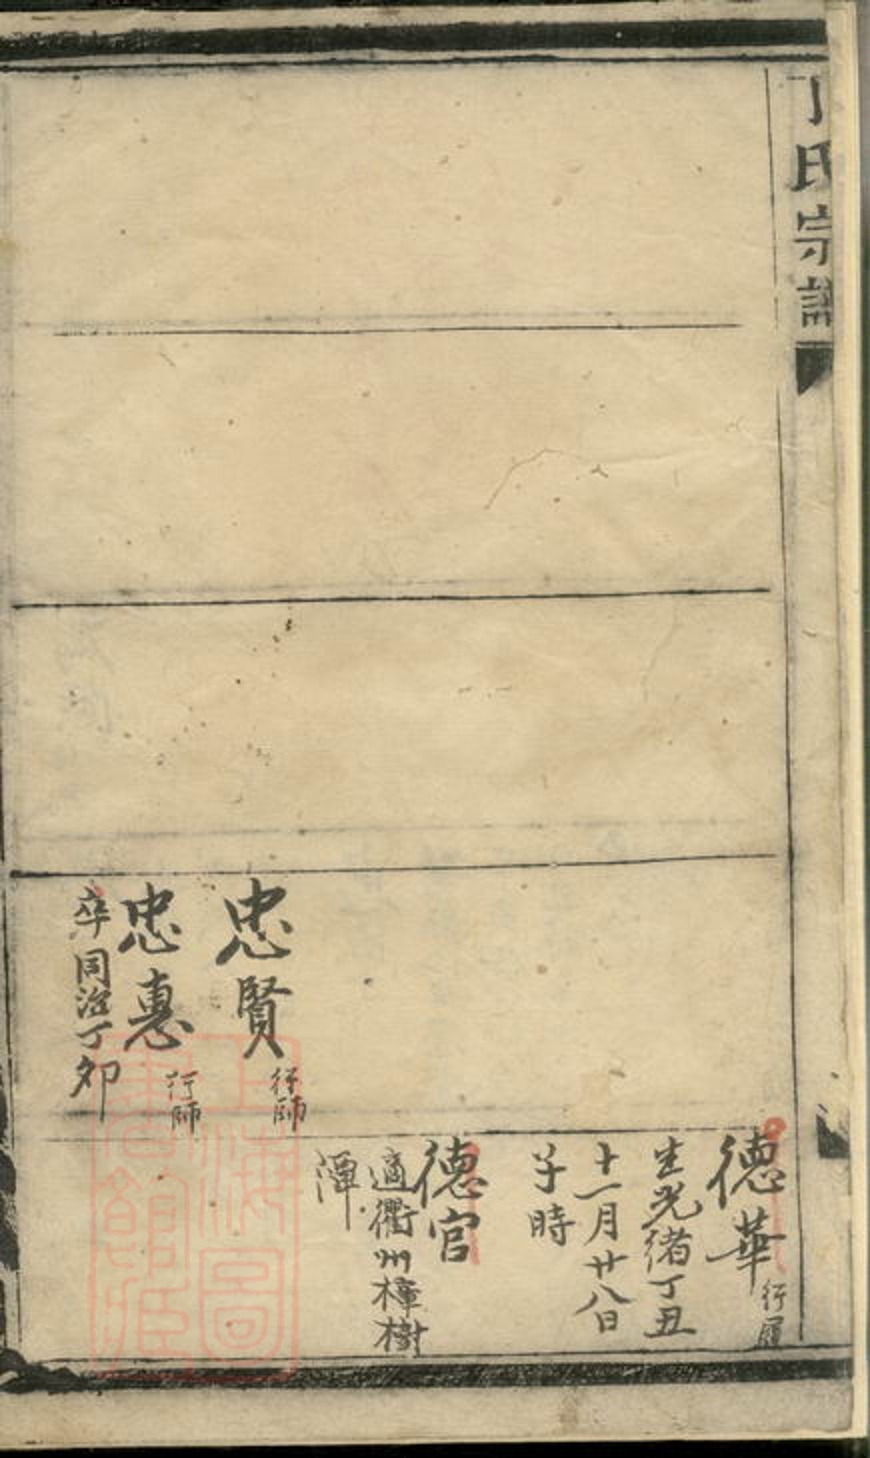 丁氏宗譜
忠賢
行師
忠惠
行師
卒同治丁卯
德華
行履
生光緒丁丑
十一月廿八日
子時
德官
適衢州樟樹
潭
上海圖
書館藏